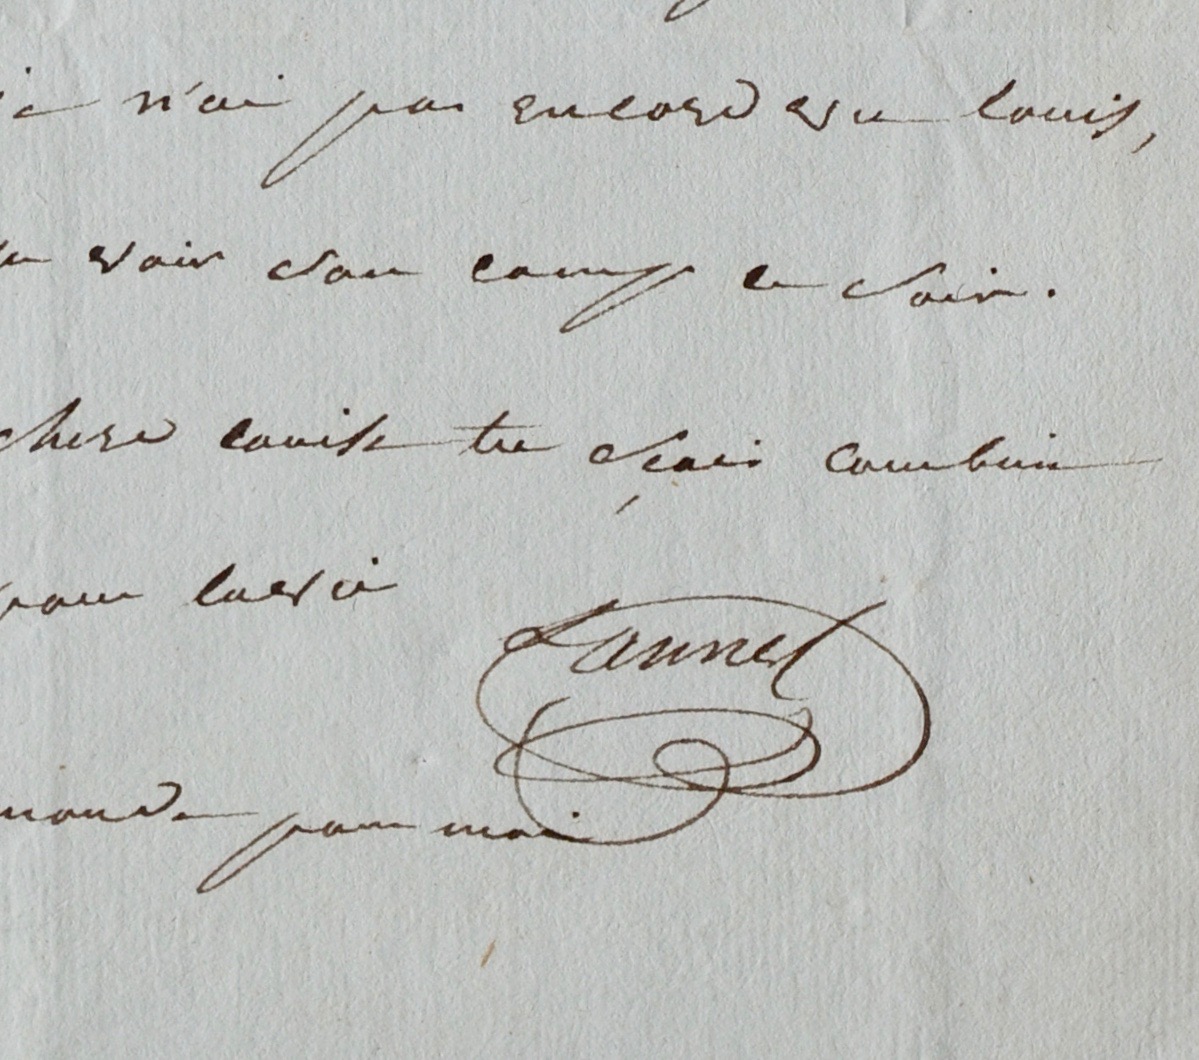 je n'ai pas encore vu louis,
voir son camp ce soir.
chere louise tu sçais combien
pour la vie
Lannes
monde pour moi